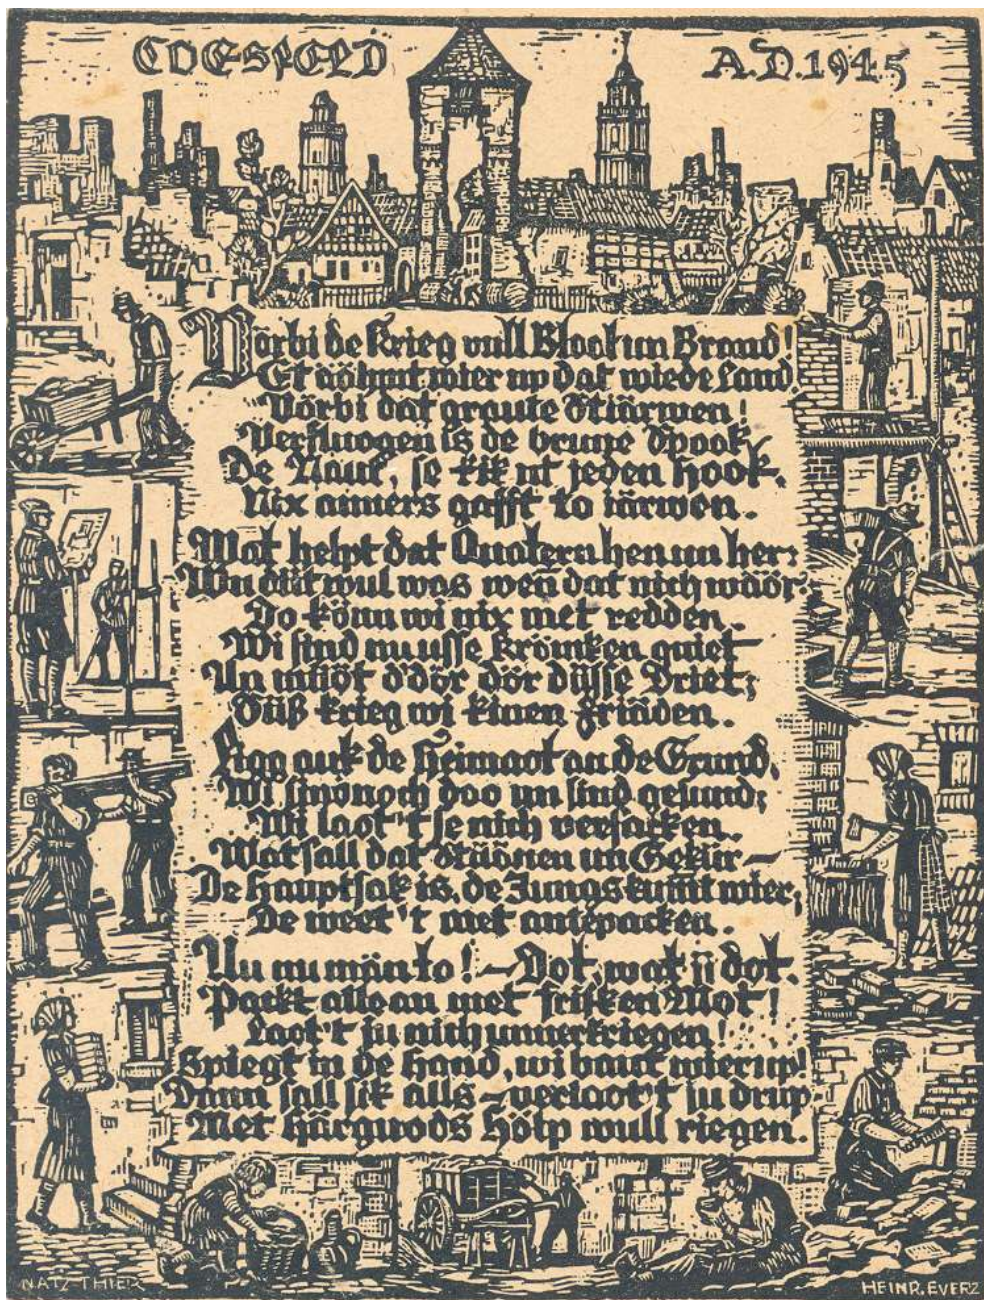 COESFELD
A.D.1945
Vörbi de Krieg vull Bloot un Brand!
Et äöhmt wier up dat wiede Land
Vörbi dat graute Stiärwen!
Verfluogen is de brune Spook,
De Naut, se kik ut jeden Hook,
Nix anners gafft to iärwen.
Wat helpt dat Quatern hen un her:
Wu düt wul was wen dat nich wäör:
Do könn wi nix met redden.
Wi sind nu usse Kröinken quiet
Un müöt d'dör dör düsse Driet;
Süß krieg wi kinen Friäden.
Ligg auk de Heimaot an de Grund,
Wi doo un sind gesund;
Wi laot't se nich versacken.
Wat sall dat Stüönen un Gekür—
De Hauptsak is, de Jungs kumt wier,
De weet't met antepacken.
Un nu män to! — Dot, wat ji dot.
Packt alle an met frisken Mot!
Laot't ju nich unnerkriegen!
Spiegt in de Hand, wi baut wier up!
Dann sall sik alls – verlaot't ju drup
Met Härguods Hölp wull riegen.
NATZ THIER
HEINR. EVERZ